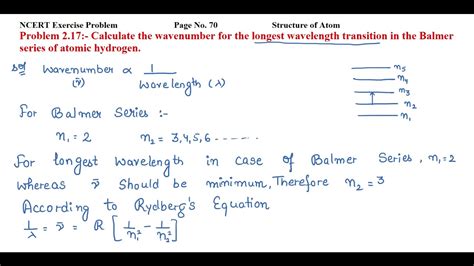 NCERT Exercise Problem Page No. 70 Structure of Atom
Problem 2.17:- Calculate the wavenumber for the longest wavelength transition in the Balmer
series of atomic hydrogen.
Sol Wavenumber ∝ 1/Wavelength (λ)
(ν̄)
n5
n4
n3
n2
n1
For Balmer Series :-
n1 = 2 n2 = 3,4,5,6 ------
For longest Wavelength in case of Balmer Series, n1=2
whereas ν̄ Should be minimum, Therefore n2 = 3
According to Rydberg's Equation
1/λ = ν̄ = R [1/n1² - 1/n2²]